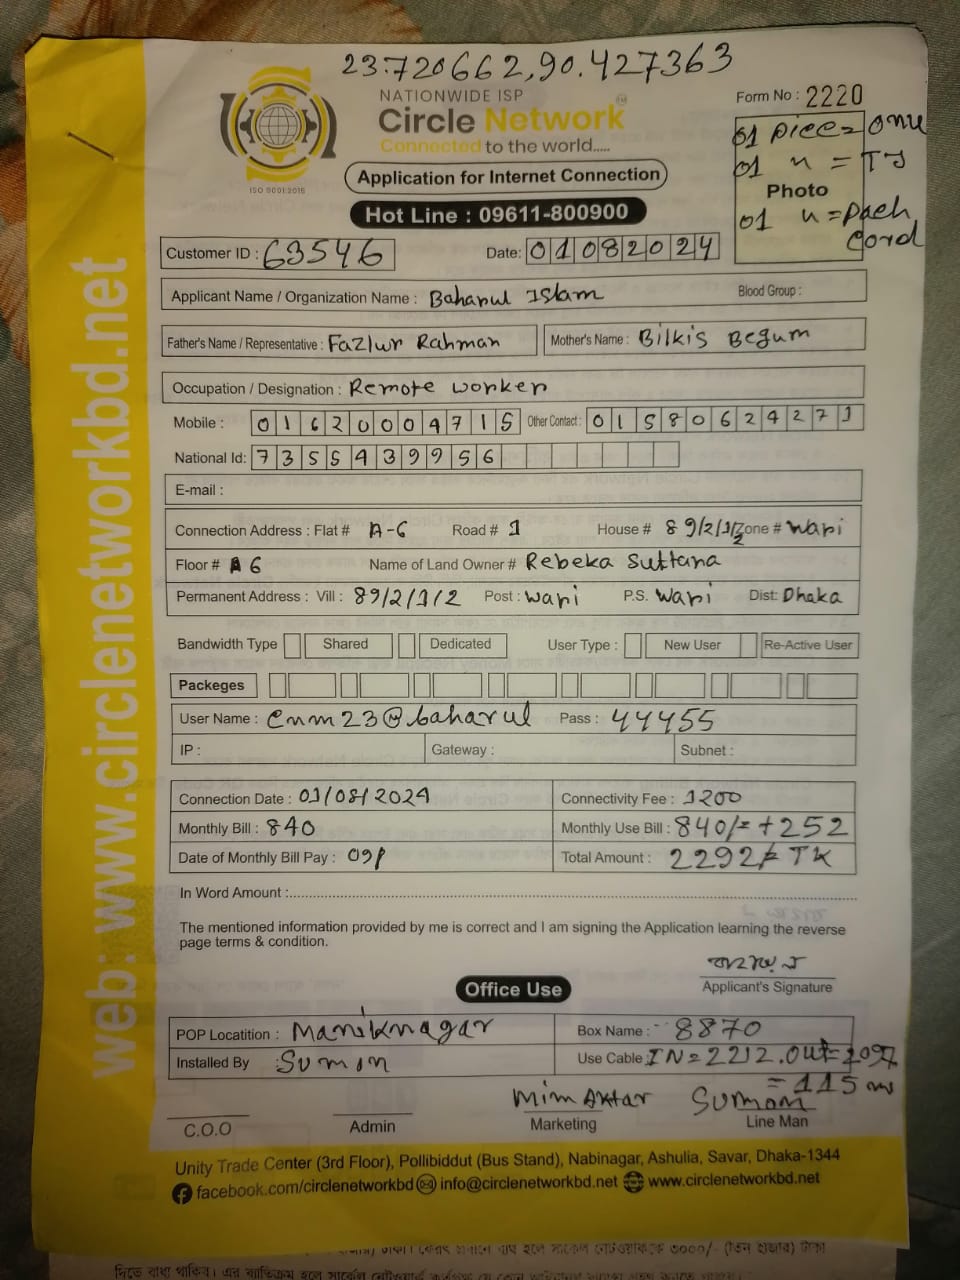 23.720662,90.427363
NATIONWIDE ISP
Circle Network
Connected to the world.....
ISO 9001:2015
Application for Internet Connection
Hot Line : 09611-800900
Form No : 2220
Photo
01 piece= onu
01 " = TJ
01 " = pach cord
Customer ID : 63546
Date: 01082024
Applicant Name / Organization Name : Baharul Islam Blood Group :
Father's Name / Representative : Fazlur Rahman Mother's Name : Bilkis Begum
Occupation / Designation : Remote worker
Mobile : 01620004715 Other Contact : 01580624271
National Id: 7355439956
E-mail :
Connection Address : Flat # A-6 Road # 1 House # 89/2/1/2 Zone # Wari
Floor # A6 Name of Land Owner # Rebeka Sultana
Permanent Address : Vill : 89/2/1/2 Post : Wari P.S. Wari Dist: Dhaka
Bandwidth Type Shared Dedicated User Type : New User Re-Active User
Packeges
User Name : cnm23@baharul Pass : 44455
IP : Gateway : Subnet :
Connection Date : 01/08/2024 Connectivity Fee : 1200
Monthly Bill : 840 Monthly Use Bill : 840/= +252
Date of Monthly Bill Pay : Total Amount : 2292/= TK
In Word Amount :
The mentioned information provided by me is correct and I am signing the Application learning the reverse
page terms & condition.
Applicant's Signature
Office Use
POP Locatition : Maniknagar Box Name : 8870
Installed By : Sumon Use Cable IN=2212. Out=2097
= 115 m
Mim Aktar Sumon
C.O.O Admin Marketing Line Man
Unity Trade Center (3rd Floor), Pollibiddut (Bus Stand), Nabinagar, Ashulia, Savar, Dhaka-1344
facebook.com/circlenetworkbd info@circlenetworkbd.net www.circlenetworkbd.net
web: www.circlenetworkbd.net